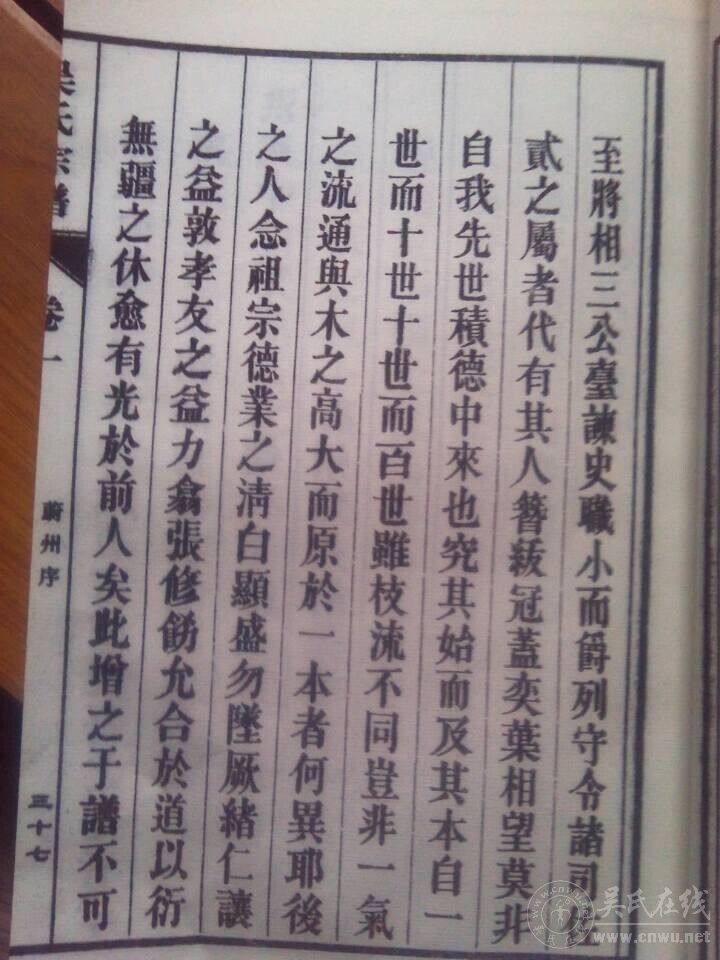 至將相三公臺諫史職小而爵列守令諸司
貳之屬者代有其人簪紱冠蓋奕葉相望莫非
自我先世積德中來也究其始而及其本自一
世而十世十世而百世雖枝流不同豈非一氣
之流通與木之高大而原於一本者何異耶後
之人念祖宗德業之淸白顯盛勿墜厥緖仁讓
之益敦孝友之益力翕張修飭允合於道以衍
無疆之休愈有光於前人矣此增之于譜不可
吳氏宗譜
卷一
蔚州序
三十七
吴氏在线
www.cnwu.net